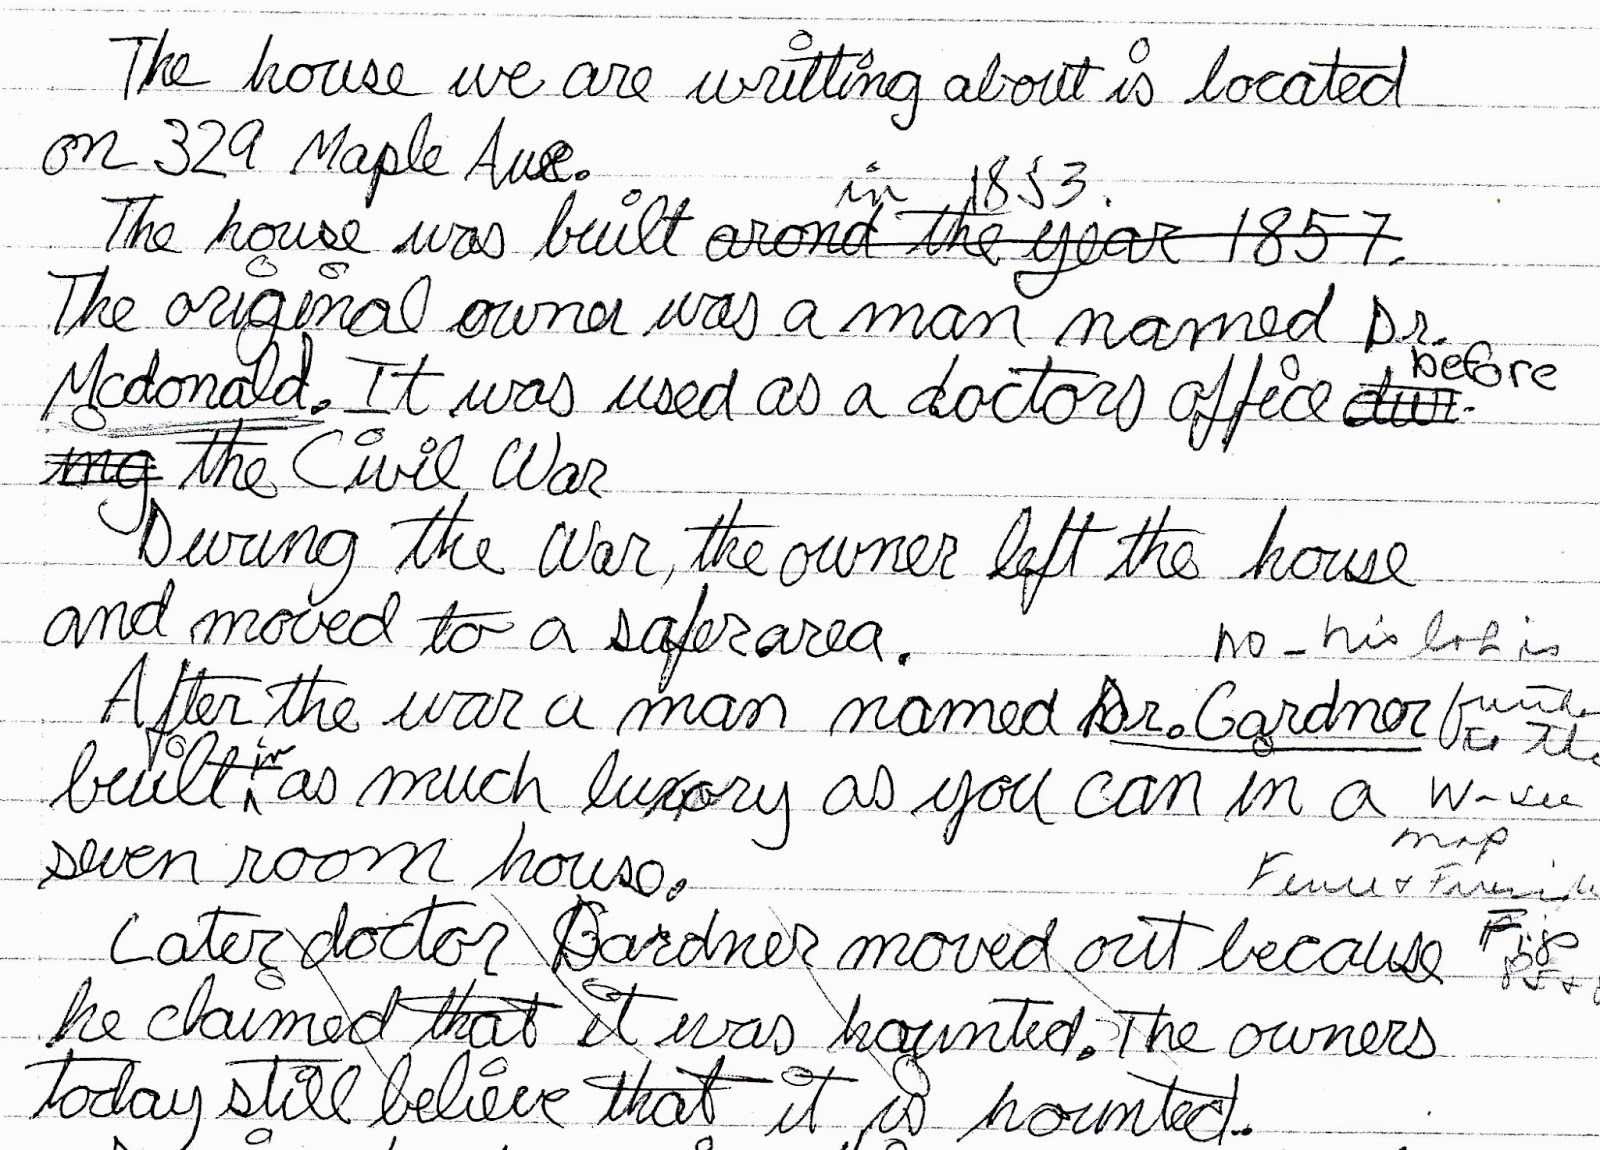 The house we are writting about is located
on 329 Maple Ave.
in 1853.
The house was built arond the year 1857.
The original owner was a man named Dr.
before
Mcdonald. It was used as a doctors office dur-
ing the Civil War
During the War, the owner left the house
and moved to a safer area.
no - his lot is
After the war a man named Dr. Gardner
furth
to the
in
built as much luxory as you can in a
W - see
map
seven room house.
Later doctor Gardner moved out because
Figs
he claimed that it was haunted. The owners
today still believe that it is hounted.